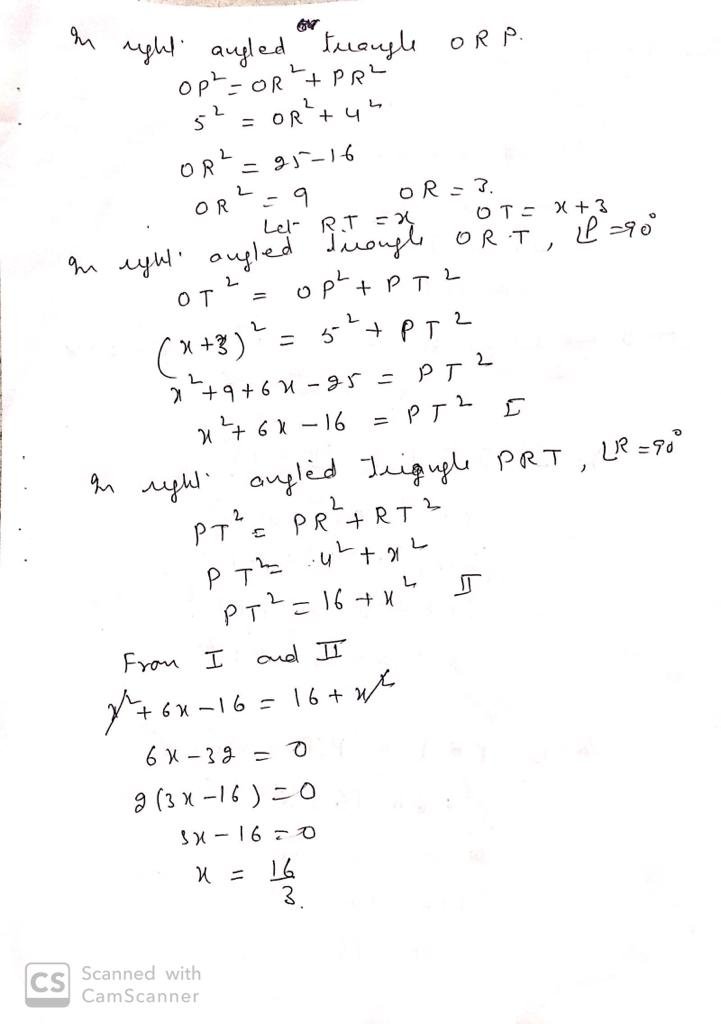 In right angled triangle ORP.
OP² = OR² + PR²
5² = OR² + 4²
OR² = 25-16
OR² = 9 OR = 3.
Let RT = x OT = x+3
In right angled triangle ORT, ∠P = 90°
OT² = OP² + PT²
(x+3)² = 5² + PT²
x² + 9 + 6x - 25 = PT²
x² + 6x - 16 = PT² I
In right angled Triangle PRT, ∠R = 90°
PT² = PR² + RT²
PT² = 4² + x²
PT² = 16 + x² II
From I and II
x² + 6x - 16 = 16 + x²
6x - 32 = 0
2(3x - 16) = 0
3x - 16 = 0
x = 16/3.
CS Scanned with
CamScanner